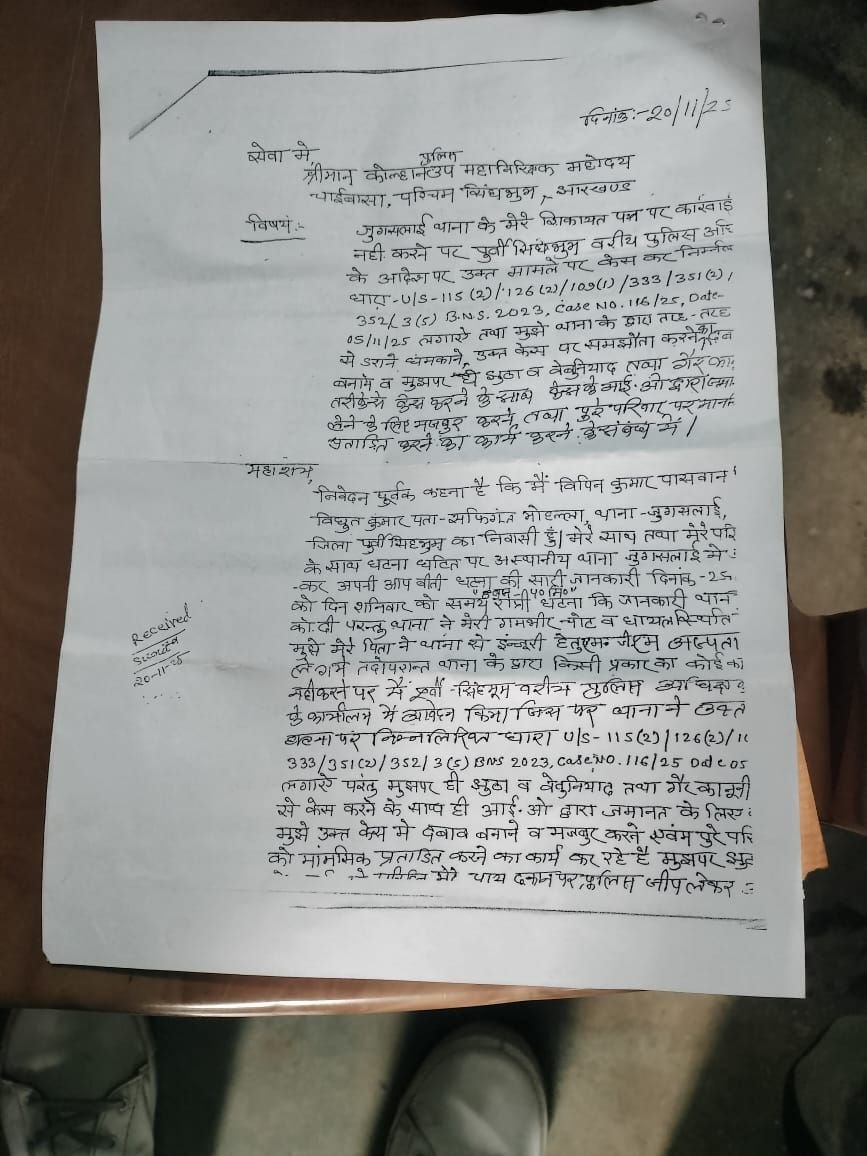 दिनांक:- 20/11/25
सेवा मे,
श्रीमान कोल्हान उप पुलिस महानिरिक्षक महोदय
चाईबासा, पश्चिम सिंहभुम, झारखण्ड
विषयं:-
जुगसलाई थाना के मेरे शिकायत पत्र पर कारवाई
नही करने पर पुर्वी सिंहभुम वरीय पुलिस अधि
के आदेश पर उक्त मामले पर केस कर निम्न
धारा - U/S - 115 (2) / 126 (2) / 109(1) / 333 / 351(2) /
352 / 3(5) B.N.S. 2023, Case NO. 116/25, Date-
05/11/25 लगाऐ तथा मुझे थाना के द्वारा तरह-तरह
से डराने धंमकाने, उक्त केस पर समझौता करने का
बनाने व मुझपर ही झुठा व बेबुनियाद तथा गैर का
तरीके से केस करने के साथ केस के आई.ओ द्वारा
लेने के लिए मजबुर करने, तथा पुरे परिवार पर
प्रताडित करने का कार्य करने के संबंध में।
महाशय,
निवेदन पूर्वक कहना है कि मैं विपिन कुमार पासवान
विधुत कुमार पता - सफिगंज मोहल्ला, थाना - जुगसलाई,
जिला पुर्वी सिंहभुम का निवासी हुँ। मेरे साथ तथा मेरे परि
के साथ घटना घटित पर अस्थानीय थाना जुगसलाई मे
कर अपनी आप बीती घटना की सारी जानकारी दिनांक - 25
को दिन शनिवार को समय रात्री 40 मि० घटना कि जानकारी थान
को दी परन्तु थाना ने मेरी गमभीर चोट व धायल स्थिति
मुझे मेरे पिता ने थाना से इंन्जूरी हेतु एम. जीएम अस्पता
ले गये तदोपरान्त थाना के द्वारा किसी प्रकार का कोई का
नही करने पर मैं पूर्वी सिंहभूम वरीय पुलिस अधिक्ष
के कार्यालय में आवेदन किया जिस पर थाना ने उक्त
घटना पर निम्नलिखित धारा U/S - 115(2) / 126(2) /
333 / 351(2) / 352 / 3(5) BNS 2023, Case NO. 116/25 Date 05
लगाऐ परंतु मुझपर ही झुठा व बेबुनियाद तथा गैर कानूनी
से केस करने के साथ ही आई. ओ द्वारा जमानत के लिए
मुझे उक्त केस मे दबाव बनाने व मजबुर करने एवंम पुरे परि
को मांनसिक प्रताडित करने का कार्य कर रहे है मुझपर झुठ
मेरे चाय दुकान पर पुलिस जीप लेकर
Received
20-11-25